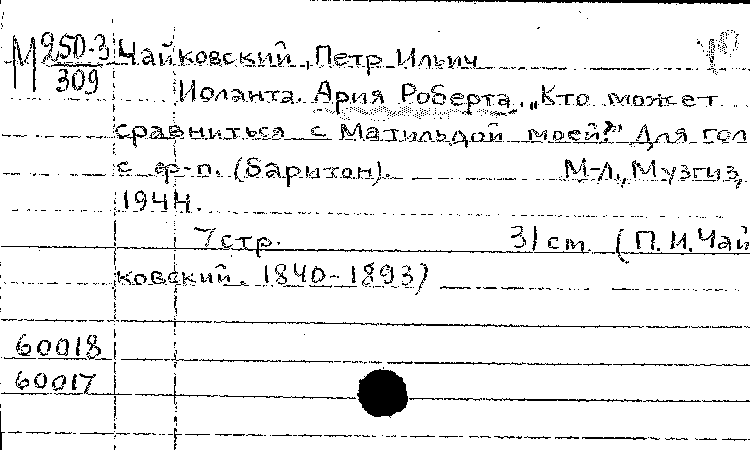 М 250-3 Чайковский, Петр Ильич
309
Иоланта. Ария Роберта. „Кто может
сравниться с Матильдой моей?" Для гол
с ф-п. (Баритон). М-Л., Музгиз,
1944.
7 стр. 31 см (П.И. Чай
ковский. 1840-1893)
60018
60017